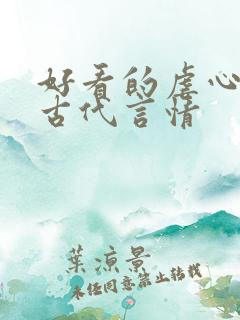 好看的虐心
古代言情
葉涼景
未经同意禁止转载